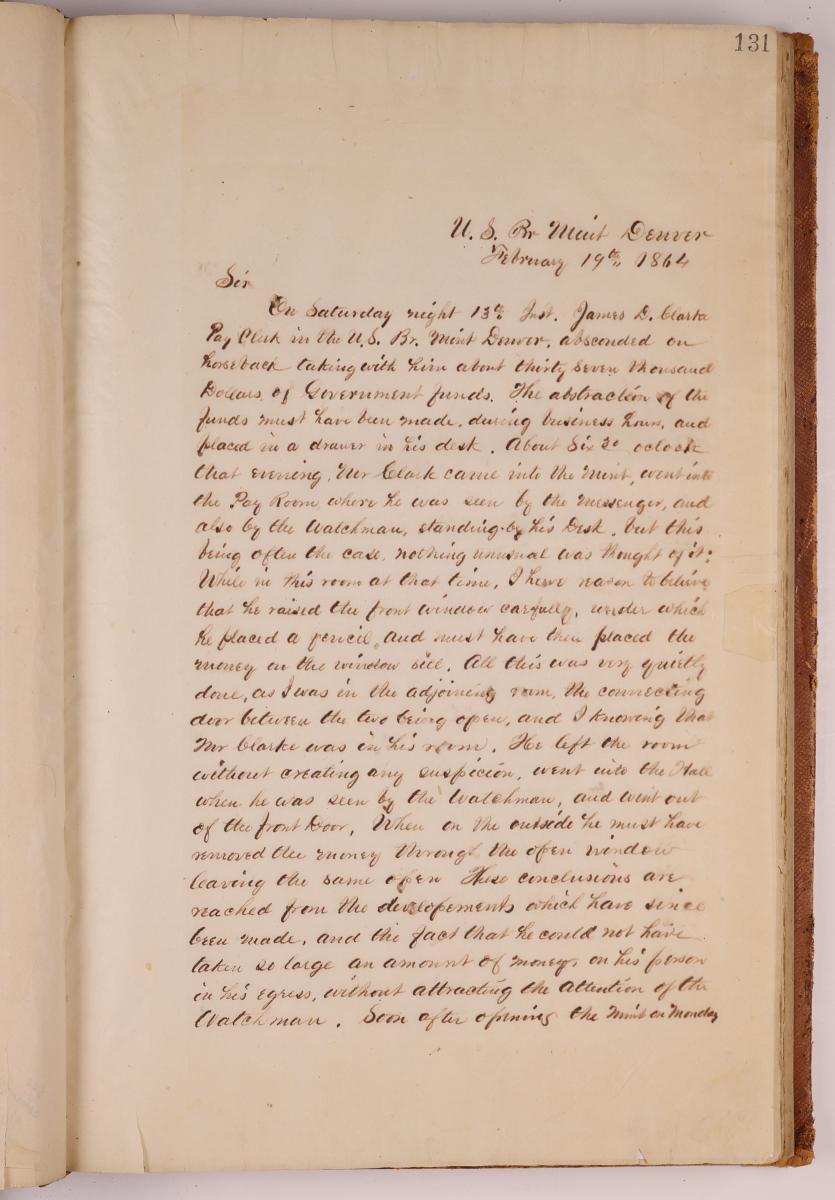 131
U. S. Br Mint Denver
February 19th, 1864
Sir
On Saturday night 13th Inst. James D. Clarke
Pay Clerk in the U.S. Br. Mint Denver. absconded on
horseback taking with him about thirty seven thousand
Dollars, of Government funds. The abstraction of the
funds must have been made, during business hours, and
placed in a drawer in his desk. About Six 30 oclock
that evening, Mr Clark came into the Mint, went into
the Pay Room, where he was seen by the Messenger, and
also by the Watchman, standing by his Desk. but this
being often the case, nothing unusual was thought of it:
While in this room at that time, I have reason to believe
that he raised the front window carefully, under which
he placed a pencil, and must have then placed the
money on the window sill. All this was very quietly
done, as I was in the adjoining room, the connecting
door between the two being open, and I knowing that
Mr Clarke was in his room. He left the room
without creating any suspicion, went into the Hall
when he was seen by the Watchman, and went out
of the front Door, When on the outside he must have
removed the money through the open window
leaving the same open These conclusions are
reached from the developements which have since
been made, and the fact that he could not have
taken so large an amount of money, on his person
in his egress, without attracting the attention of the
Watchman. Soon after opening the Mint on Monday